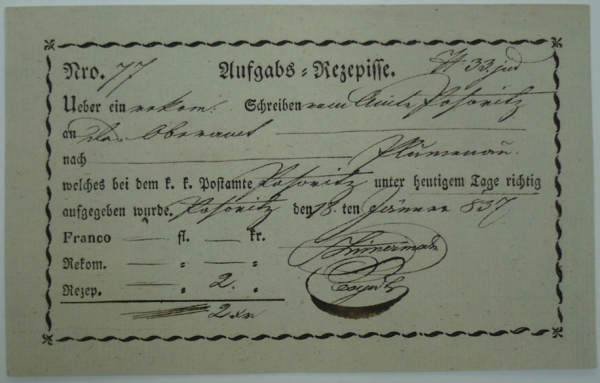 Nro. 77 Aufgabs=Rezepisse. 33 jud
Ueber ein rekom. Schreiben vom Amte Posoritz
an das Oberamt
nach Plumenau.
welches bei dem k. k. Postamte Posoritz unter heutigem Tage richtig
aufgegeben wurde. Posoritz den 18. ten Jänner 837
Franco — fl. — kr.
Rekom. — " — "
Rezep. — " 2. "
2 xr